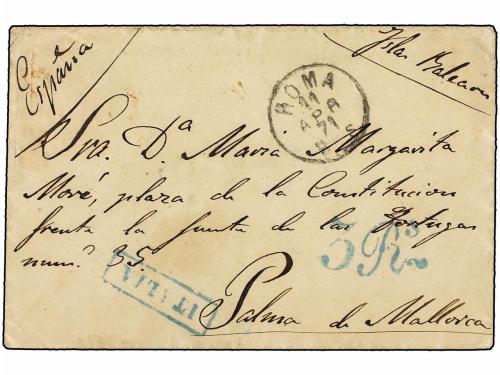 España
Islas Baleares
ROMA
11
APR
71
Sra. Dª Maria Margarita
Moré, plaza de la Constitucion
frente la fuente de las Tortugas
num.º 35.
5 Rs
ITALIA
Palma de Mallorca